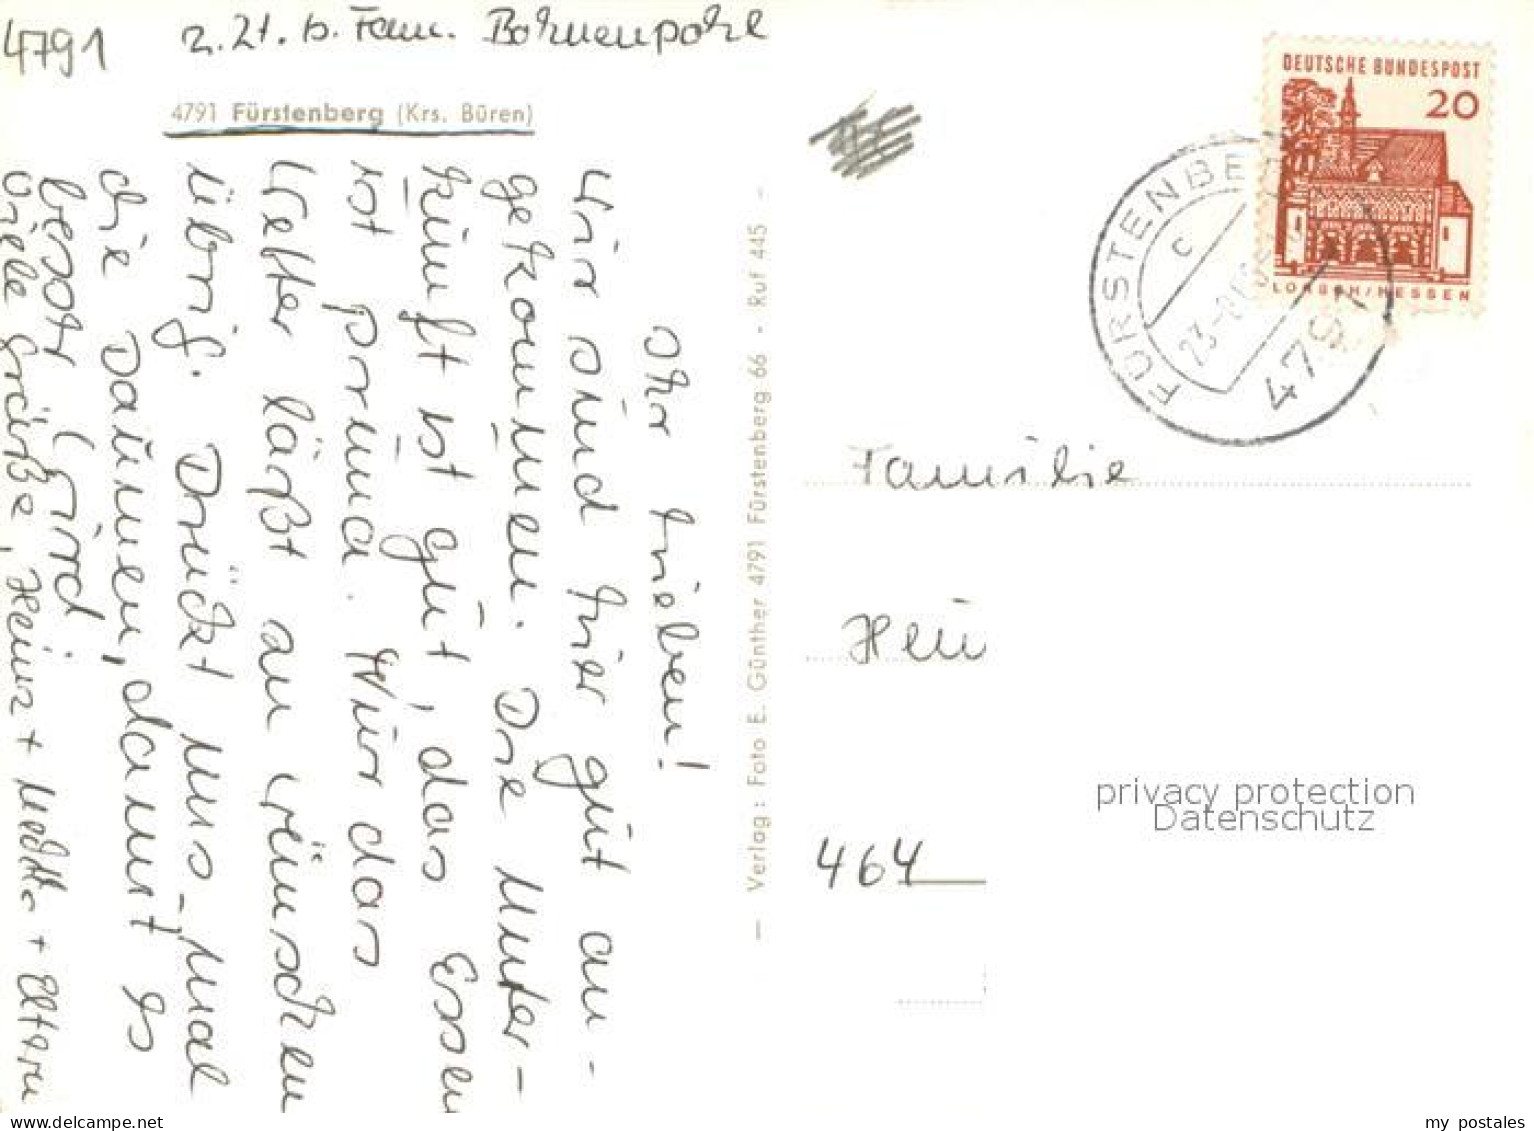 4791 z. Zt. b. Fam. Bohnenpohl
4791 Fürstenberg (Krs. Büren)
Ihr Lieben!
Wir sind hier gut an-
gekommen. Die Unter-
kunft ist gut, das Essen
ist prima. Nur das
Wetter läßt an wünschen
übrig. Drückt uns mal
die Daumen, damit es
besser wird
Viele Grüße, Heinz + + Eltern
— Verlag: Foto E. Günther 4791 Fürstenberg 66 - Ruf 445 -
DEUTSCHE BUNDESPOST
20
LORSCH/HESSEN
FÜRSTENBERG
c
23.-8.
4791
Familie
Hein
464
privacy protection
Datenschutz
my postales